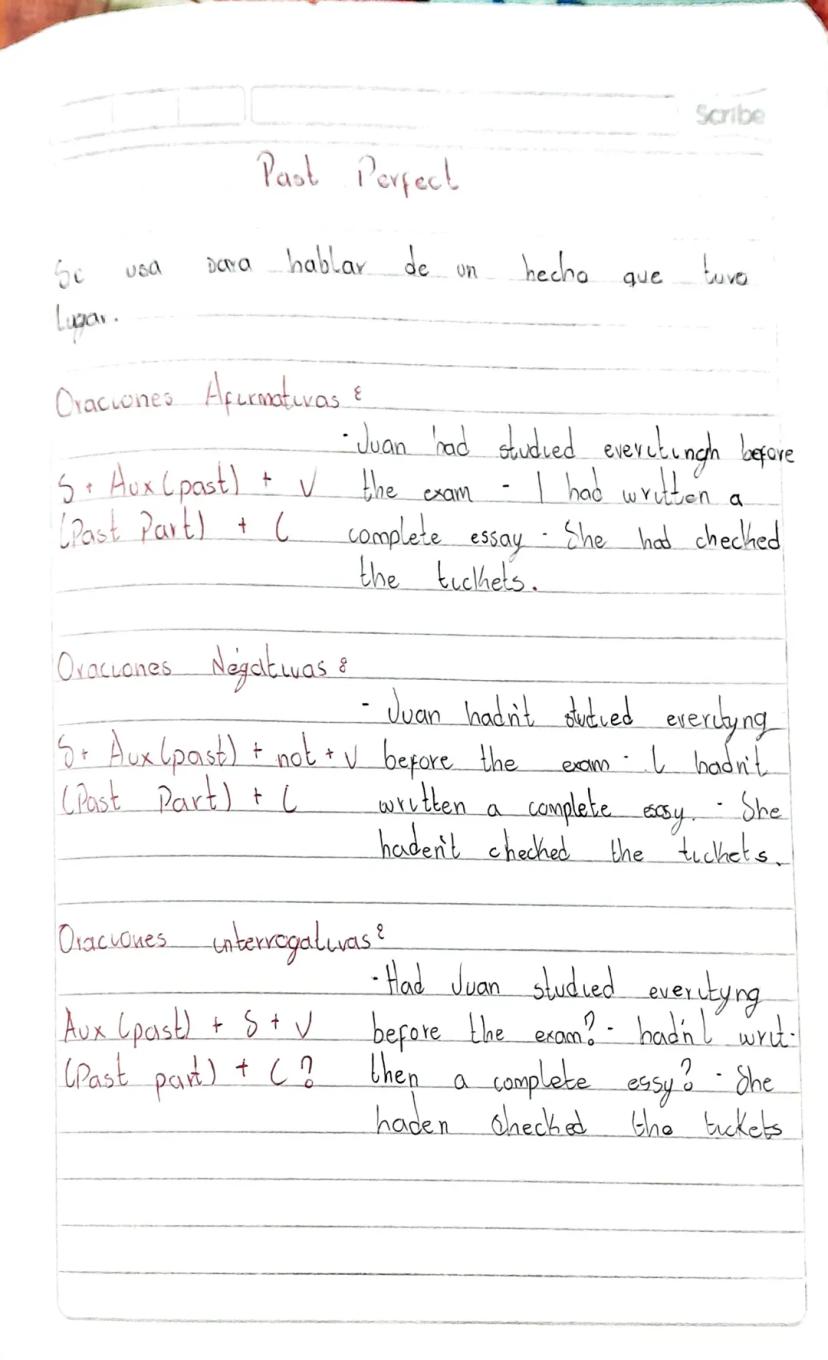 Scribe
Past Perfect
Se usa para hablar de un hecho que tuvo
lugar.
Oraciones Afirmativas :
· Juan had studied everitingh before
S + Aux (past) + V the exam - I had written a
(Past Part) + C complete essay · She had checked
the tickets.
Oraciones Négativas :
- Juan hadn't studied everityng
S + Aux (past) + not + V before the exam · I hadn't
(Past Part) + C written a complete essy. · She
haden't checked the tickets.
Oraciones interrogativas :
· Had Juan studied everityng
Aux (past) + S + V before the exam? · hadn't writ-
(Past part) + C? then a complete essy? · She
haden checked the tickets